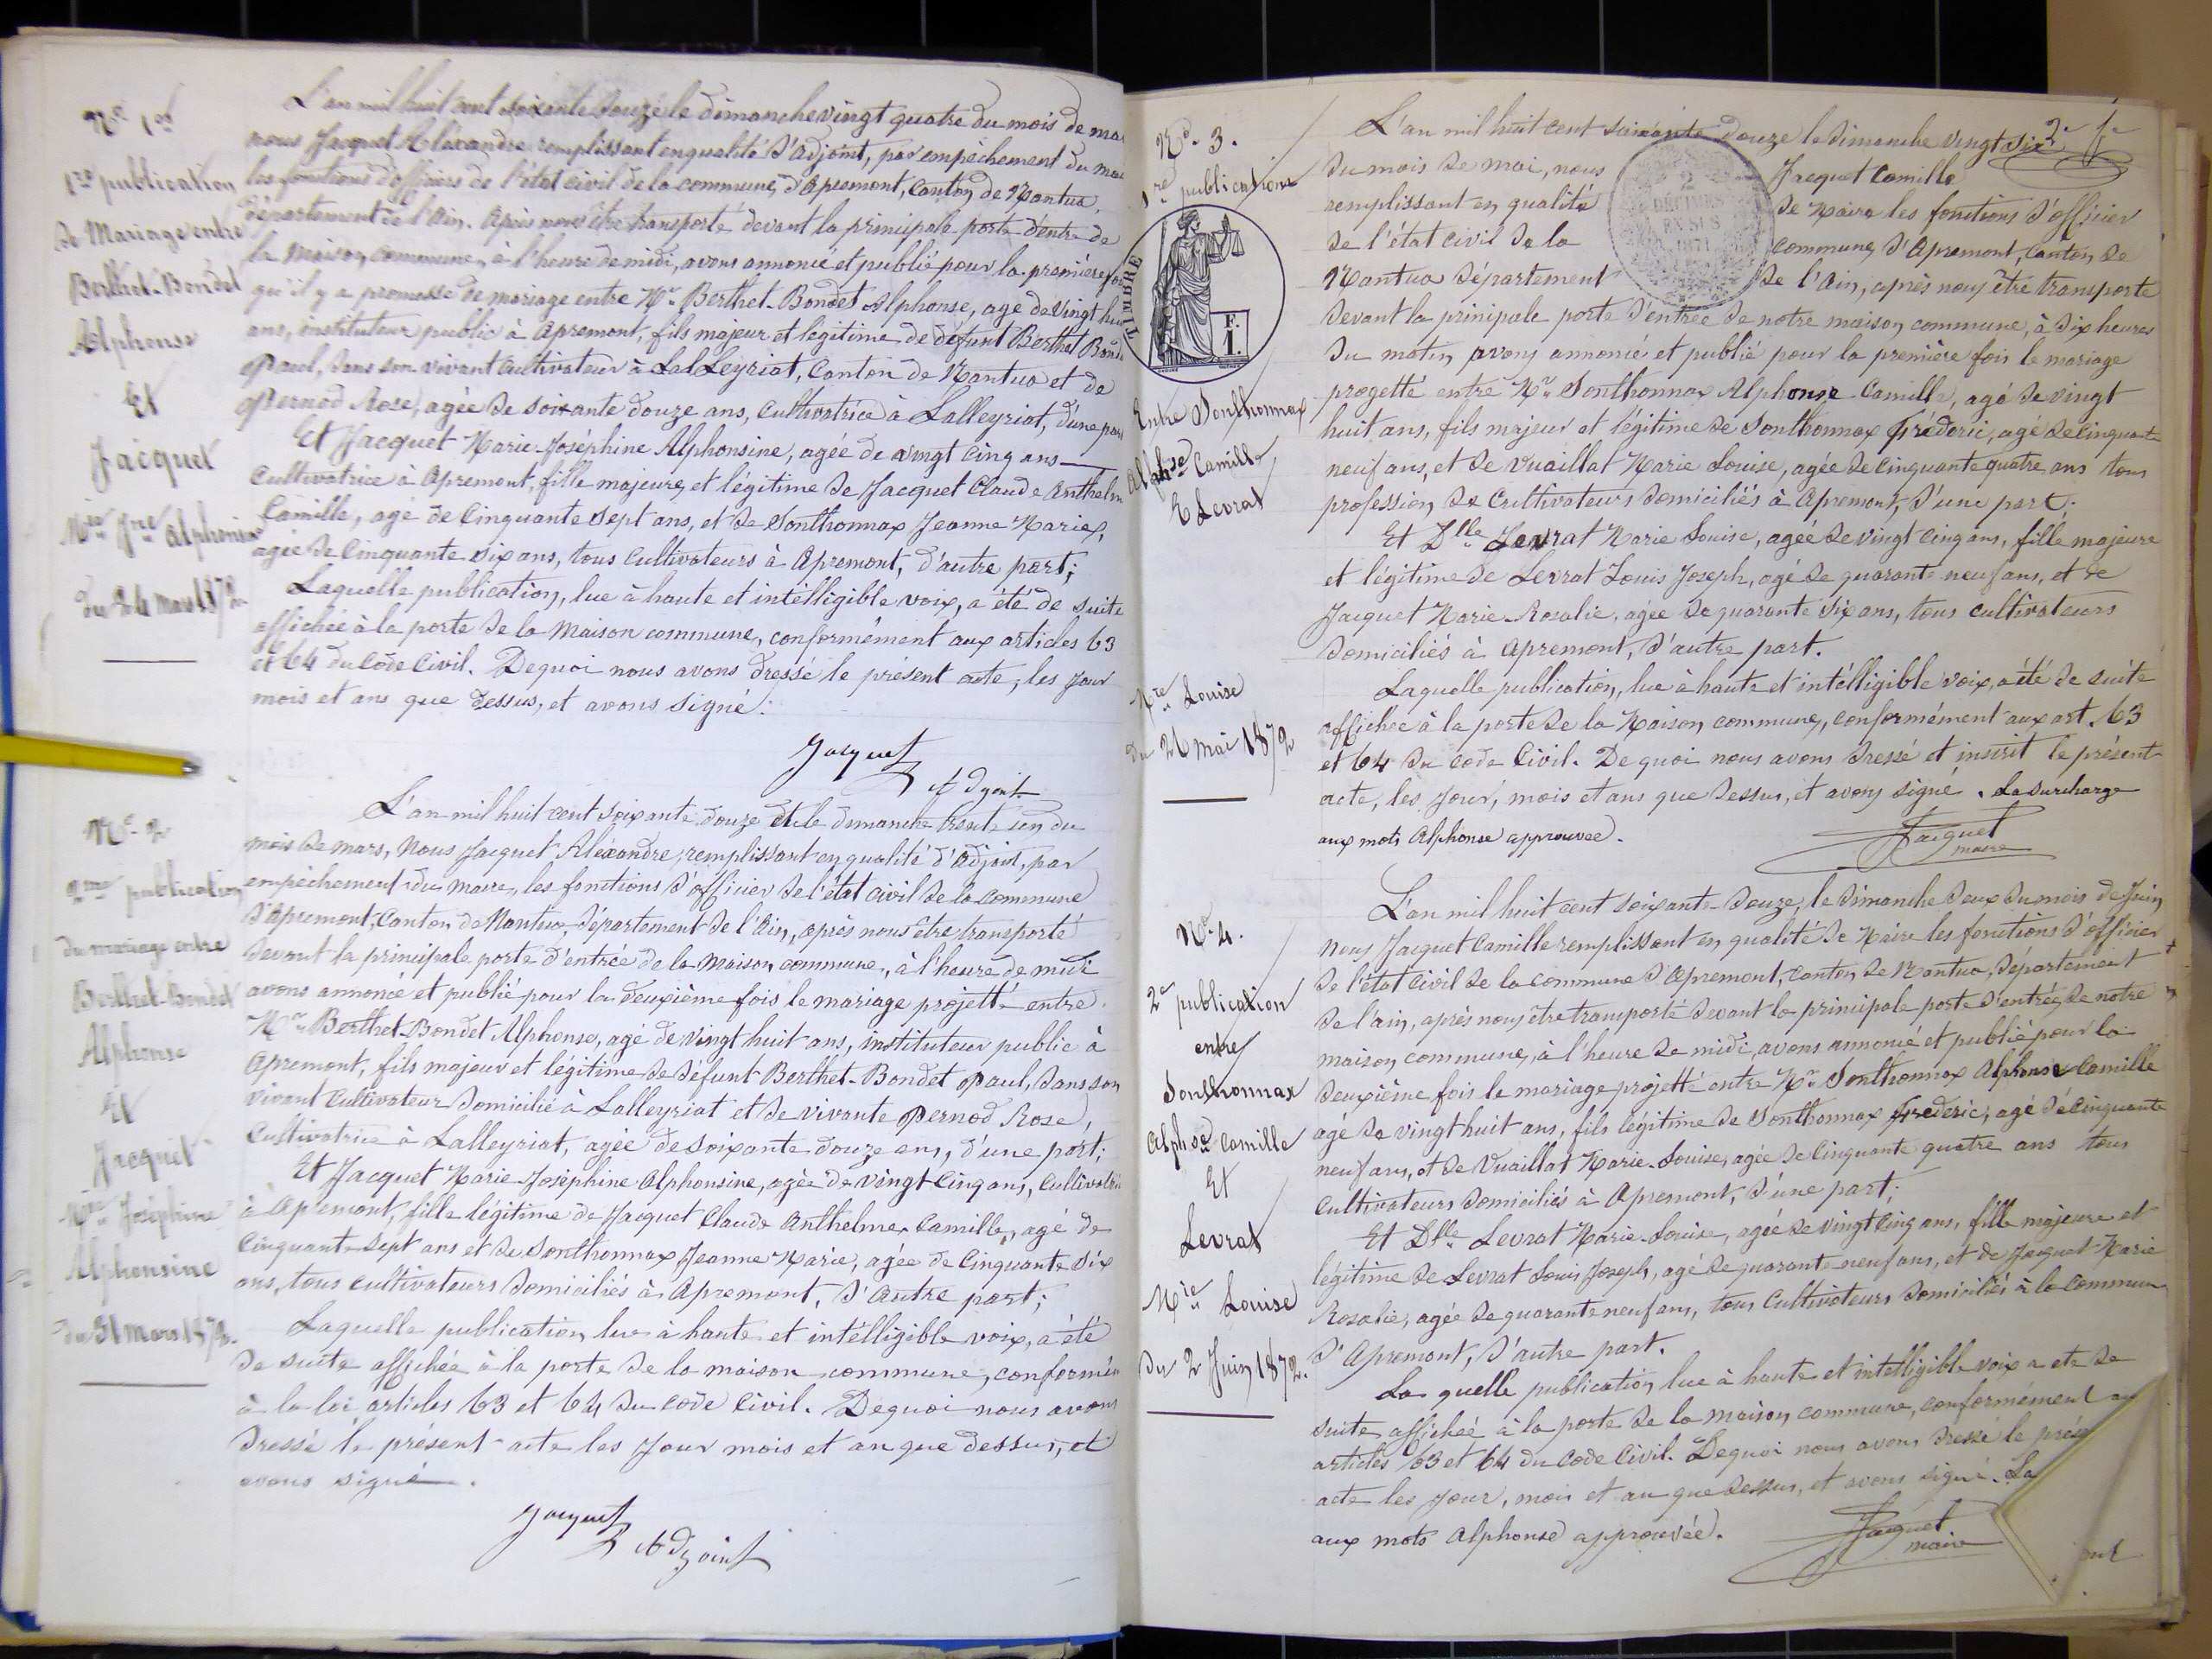 Nº 1er
1re publication
de Mariage entre
Berthet-Bondet
Alphonse
Et
Jacquet
Mie Jne Alphonsine
du 24 Mars 1872
L'an mil huit cent soixante douze le dimanche vingt quatre du mois de mar
nous Jacquet Aléxandre remplissant en qualité d'adjoint, par empêchement du mai
les fonctions d'officiers de l'état civil de la commune, d'Apremont, Canton de Nantua,
département de l'Ain. Après nous être transporté devant la principale porte d'entre de
la Maison commune, à l'heure de midi, avons annoncé et publié pour la première fois
qu'il y a promesse de mariage entre Mr Berthet-Bondet Alphonse, age de vingt huit
ans, instituteur public à Apremont, fils majeur et legitime de défunt Berthet Bond
Paul, dans son vivant cultivateur à Lal Leyriat, Canton de Nantua et de
Pernod Rose, agée de soixante douze ans, cultivatrice à Lalleyriat, d'une part
Et Jacquet Marie-Joséphine Alphonsine, agée de vingt cinq ans
cultivatrice à Apremont, fille majeure, et légitime de Jacquet Claude Anthelm
Camille, age de cinquante sept ans, et de Sonthonnax Jeanne Marie,
agée de cinquante six ans, tous cultivateurs à Apremont, d'autre part;
Laquelle publication, lue à haute et intelligible voix, a été de suite
affichée à la porte de la Maison commune, conformément aux articles 63
et 64 du Code Civil. De quoi nous avons dressé le présent acte, les jour
mois et ans que dessus, et avons signé.
Jacquet
Adjoint
Nº 2
2me publication
du mariage entre
Berthet-Bondet
Alphonse
Et
Jacquet
Mie Joséphine
Alphonsine
du 31 Mars 1872.
L'an mil huit cent soixante douze et le dimanche trente un du
mois de mars, Nous Jacquet Aléxandre, remplissant en qualité d'Adjoint, par
empêchement du maire, les fonctions d'officier de l'état civil de la commune
d'Apremont, Canton de Nantua, département de l'Ain, après nous être transporté
devant la principale porte d'entrée de la Maison commune, à l'heure de midi
avons annoncé et publié pour la deuxième fois le mariage projetté entre
Mr Berthet-Bondet Alphonse, agé de vingt huit ans, instituteur public à
Apremont, fils majeur et légitime de défunt Berthet-Bondet Paul, dans son
vivant cultivateur domicilié à Lalleyriat et de vivante Pernod Rose,
Cultivatrice à Lalleyriat, agée de soixante douze ans, d'une part;
Et Jacquet Marie-Joséphine Alphonsine, agée de vingt cinq ans, cultivatrice
à Apremont, fille légitime de Jacquet Claude Anthelme Camille, agé de
cinquante sept ans et de Sonthonnax Jeanne Marie, agée de cinquante six
ans, tous cultivateurs domiciliés à Apremont, d'autre part;
Laquelle publication lue à haute et intélligible voix, a été
de suite affichée à la porte de la maison commune, conformém
à la loi articles 63 et 64 du code Civil. De quoi nous avons
dressé le présent acte les jour mois et an que dessus, et
avons signé.
Jacquet
Adjoint
2e f
Nº 3.
1re publication
TIMBRE
F.
I.
Entre Sonthonnax
Alphse Camille
Et Levrat
Mie Louise
Du 26 mai 1872
2
DÉCIMES
EN SUS
1871
L'an mil huit cent soixante douze le dimanche vingt six
du mois de mai, nous Jacquet Camille,
remplissant en qualité de Maire les fonctions d'officier
de l'état civil de la commune, d'Apremont, Canton de
Nantua département de l'Ain, après nous être transporté
devant la prinipale porte d'entrée de notre maison commune, à dix heures
du matin, avons annoncé et publié pour la première fois le mariage
progetté entre Mr Sonthonnax Alphonse Camille, agé de vingt
huit ans, fils majeur et légitime de Sonthonnax Fréderic, agé de cinquante
neuf ans, et de Vuaillat Marie Louise, agée de cinquante quatre ans tous
profession de Cultivateurs domiciliés à Apremont, d'une part;
Et Dlle Levrat Marie Louise, agée de vingt cinq ans, fille majeure
et légitime de Levrat Louis Joseph, agé de quarante neuf ans, et de
Jacquet Marie-Rosalie, agée de quarante six ans, tous cultivateurs
domiciliés à Apremont, d'autre part.
Laquelle publication, lue à haute et intélligible voix, a été de suite
affichée à la porte de la Maison commune, conformément aux art. 63
et 64 du code Civil. De quoi nous avons dressé et inscrit le présent
acte, les jour, mois et ans que dessus, et avons signé. La surcharge
aux mots Alphonse approuvée.
Jacquet
maire
Nº 4.
2e publication
entre
Sonthonnax
Alphse Camille
Et
Levrat
Mie Louise
Du 2 Juin 1872.
L'an mil huit cent soixante-douze, le dimanche deux du mois de Juin
nous Jacquet Camille remplissant en qualité de Maire les fonctions d'officier
de l'état civil de la commune d'Apremont, canton de Nantua, département
de l'ain, après nous être transporté devant la principale porte d'entrée, de notre
maison commune, à l'heure de midi, avons annoncé et publié pour la
deuxième fois le mariage projetté entre Mr Sonthonnax Alphonse Camille
agé de vingt huit ans, fils légitime de Sonthonnax Fréderic, agé de cinquante
neuf ans, et de Vuaillat Marie-Louise, agée de cinquante quatre ans tous
cultivateurs domiciliés à Apremont, d'une part;
Et Dlle Levrat Marie-Louise, agée de vingt cinq ans, fille majeure et
légitime de Levrat Louis Joseph, agé de quarante neuf ans, et de Jacquet Marie
Rosalie, agée de quarante neuf ans, tous Cultivateurs domiciliés à la commune
d'Apremont, d'autre part.
La quelle publication lue à haute et intelligible voix a ete de
suite affichée à la porte de la maison commune, conformément au
articles 63 et 64 du Code Civil. Dequoi nous avons dressé le prés
acte les jour, mois et an que dessus, et avons signé. La
aux mots Alphonse approuvée.
Jacquet
maire